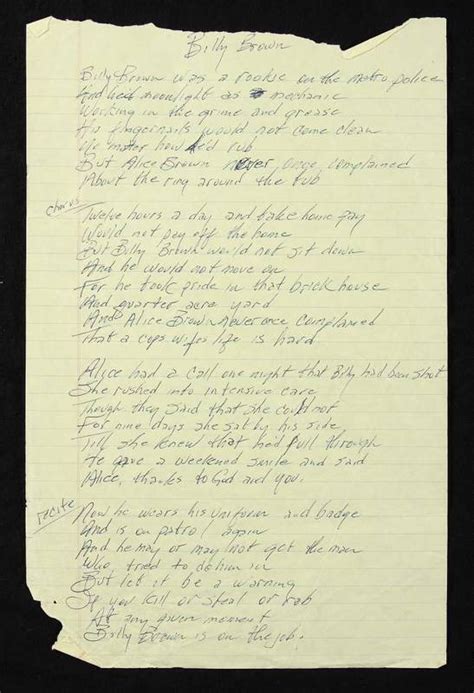 Billy Brown
Billy Brown was a rookie on the metro police
And he'd moonlight as a mechanic
Working in the grime and grease
His fingernails would not come clean
No matter how he'd rub
But Alice Brown never once complained
About the ring around the tub
chorus
Twelve hours a day and take home pay
Would not pay off the home
But Billy Brown would not sit down
And he would not move on
For he took pride in that brick house
And quarter acre yard
And Alice Brown never once complained
That a cops wifes life is hard
Alice had a call one night that Billy had been shot
She rushed into intensive care
Though they said that she could not
For nine days she sat by his side
Till she knew that he'd pull through
He gave a weekened smile and said
Alice, thanks to God and you.
recite
Now he wears his uniform and badge
And is on patrol again
And he may or may not get the man
Who tried to do him in
But let it be a warning
If you kill or steal or rob
At any given moment
Billy Brown is on the job.